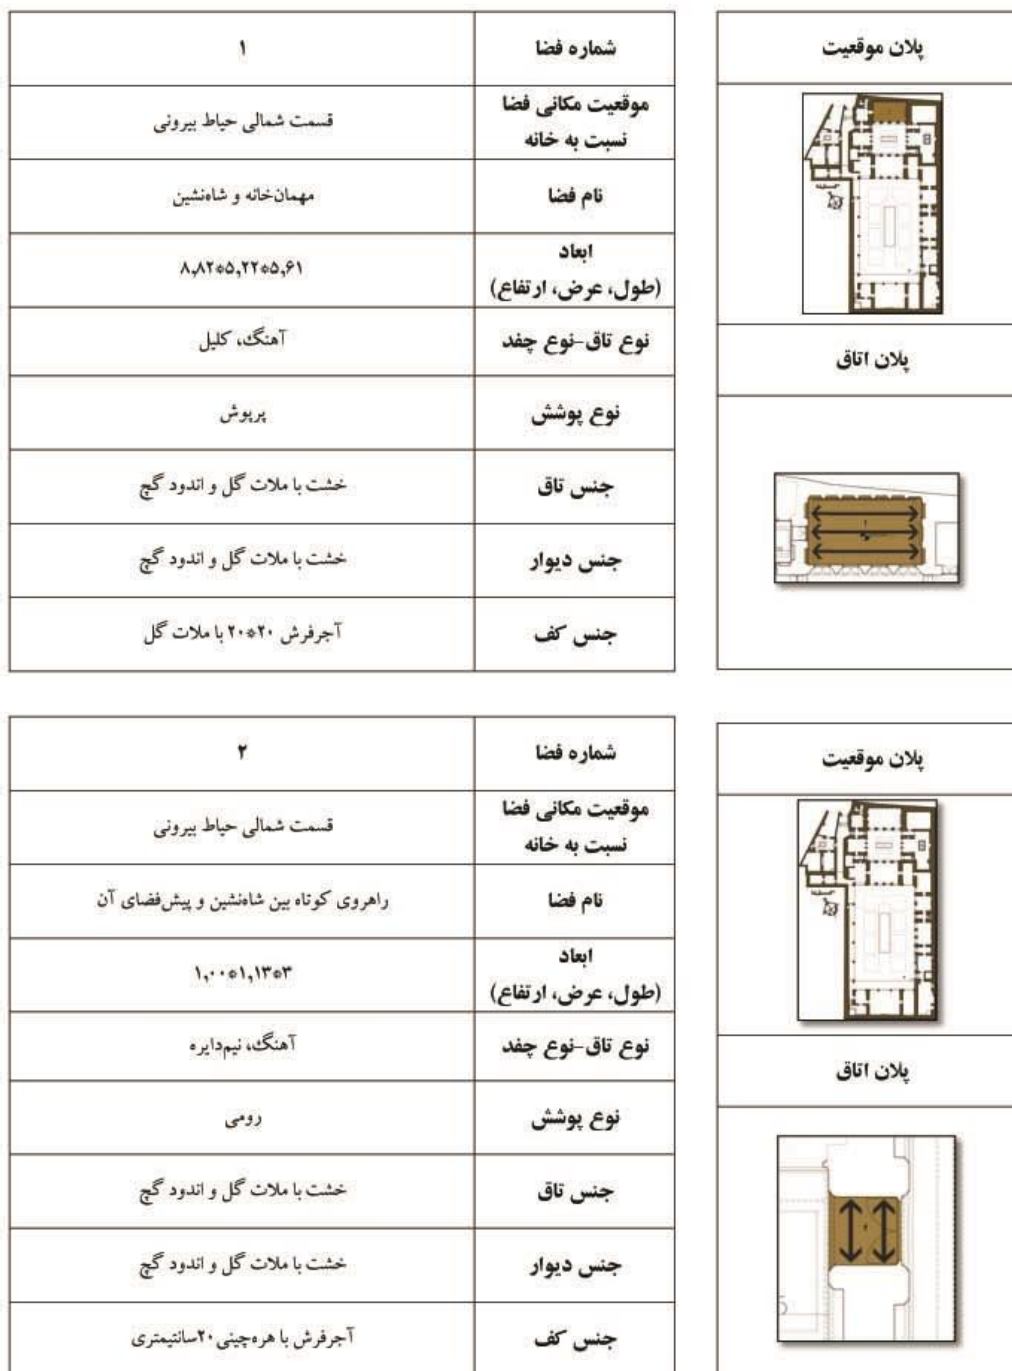 پلان موقعیت
پلان اتاق
شماره فضا ۱
موقعیت مکانی فضا
نسبت به خانه
قسمت شمالی حیاط بیرونی
نام فضا مهمان‌خانه و شاه‌نشین
ابعاد
(طول، عرض، ارتفاع)
۸,۸۲*۵,۲۲*۵,۶۱
نوع تاق-نوع چفد آهنگ، کلیل
نوع پوشش پرپوش
جنس تاق خشت با ملات گل و اندود گچ
جنس دیوار خشت با ملات گل و اندود گچ
جنس کف آجرفرش ۲۰*۲۰ با ملات گل
پلان موقعیت
پلان اتاق
شماره فضا ۲
موقعیت مکانی فضا
نسبت به خانه
قسمت شمالی حیاط بیرونی
نام فضا راهروی کوتاه بین شاه‌نشین و پیش‌فضای آن
ابعاد
(طول، عرض، ارتفاع)
۱,۰۰*۱,۱۳*۳
نوع تاق-نوع چفد آهنگ، نیم‌دایره
نوع پوشش رومی
جنس تاق خشت با ملات گل و اندود گچ
جنس دیوار خشت با ملات گل و اندود گچ
جنس کف آجرفرش با هره‌چینی ۲۰سانتیمتری